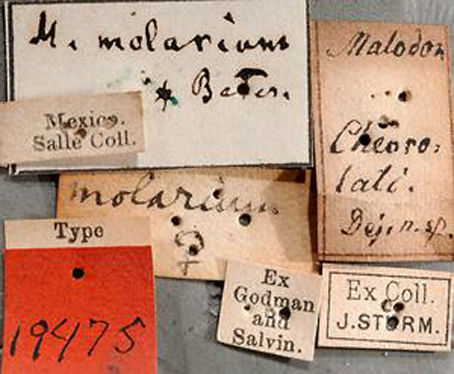 M. molarium
* Bates.
Mexico.
Salle Coll.
Malodon
Chevro:
lati.
Dej. n. sp.
molarium.
♀
Type
19475
Ex
Godman
and
Salvin.
Ex Coll.
J. STURM.